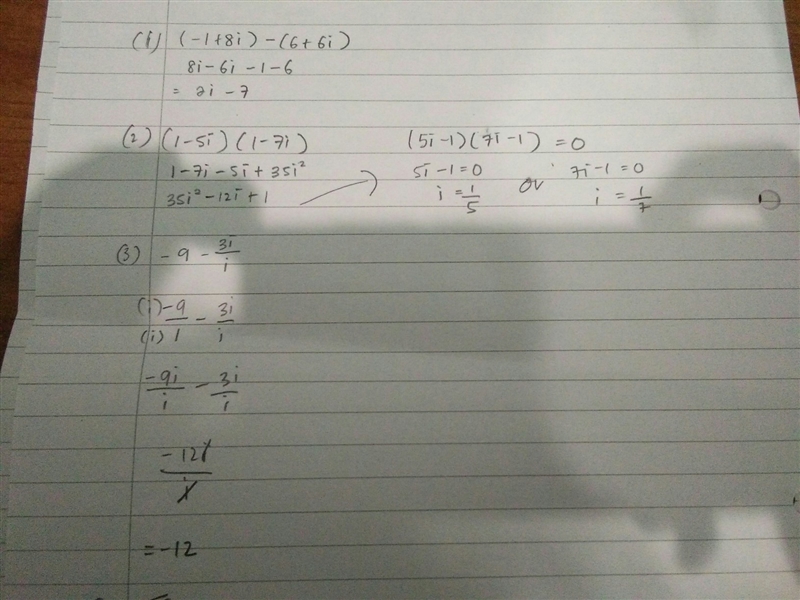 (1) (-1+8i) -(6+6i)
8i-6i -1-6
= 2i -7
(2) (1-5i) (1-7i)
1-7i-5i+35i²
35i²-12i+1
(5i-1)(7i-1) =0
5i-1=0 or 7i-1=0
i = 1/5 i = 1/7
(3) -9 - 3i/i
(i)-9/(i)1 - 3i/i
-9i/i - 3i/i
-12i/i
= -12